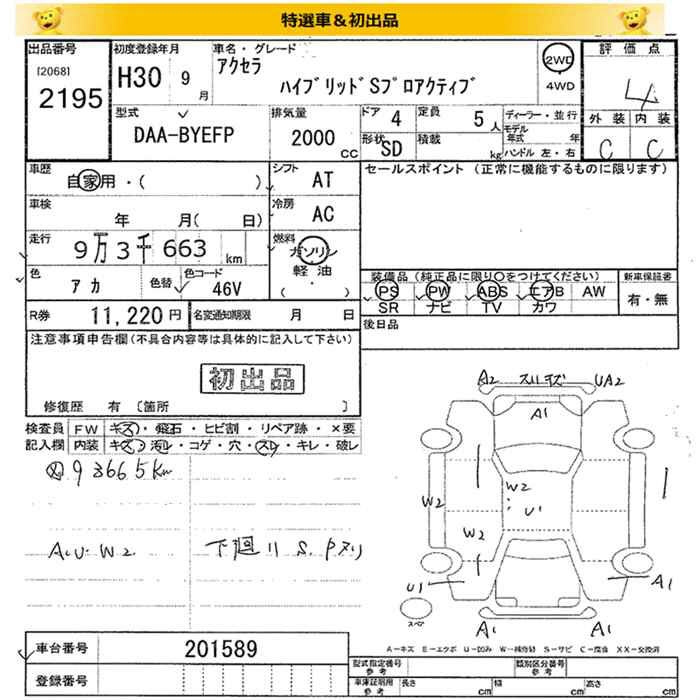 特選車＆初出品
出品番号 初度登録年月 車名・グレード 評価点
[2068] アクセラ 2WD
2195 H30 9月 ハイブリッドSプロアクティブ 4WD 4
型式 排気量 ドア 4 定員 5人 ディーラー・並行 外装 内装
DAA-BYEFP 2000cc 形状 SD 積載 kg モデル年式 年 C C
ハンドル 左・右
車歴 自家用・( ) シフト AT セールスポイント (正常に機能するものに限ります)
車検 年 月( 日) 冷房 AC
走行 9万3千663km 燃料 ガソリン
軽油
・( )
色 アカ 色替 色コード 46V 装備品 (純正品に限り○をつけてください) 新車保証書
PS PW ABS エアB AW 有・無
SR ナビ TV カワ
R券 11,220円 名変通知期限 月 日 後日品
注意事項申告欄(不具合内容等は具体的に記入して下さい)
初出品
修復歴 有 〔箇所 〕
検査員 FW キズ・飛石・ヒビ割・リペア跡・×要
記入欄 内装 キズ・汚れ・コゲ・穴・スレ・キレ・破レ
93665km
A.U.W2. 下廻り S.Pヌリ
A2 スリキズ UA2
A1
W2
W2 U1
W2
U1 A1
スペア A1 A1
A－キズ E－エクボ U－凹み W－補修跡 S－サビ C－腐食 XX－交換済
車台番号 201589
登録番号
型式指定番号 参考 類別区分番号 参考
車庫証明用 参考 長さ cm 幅 cm 高さ cm